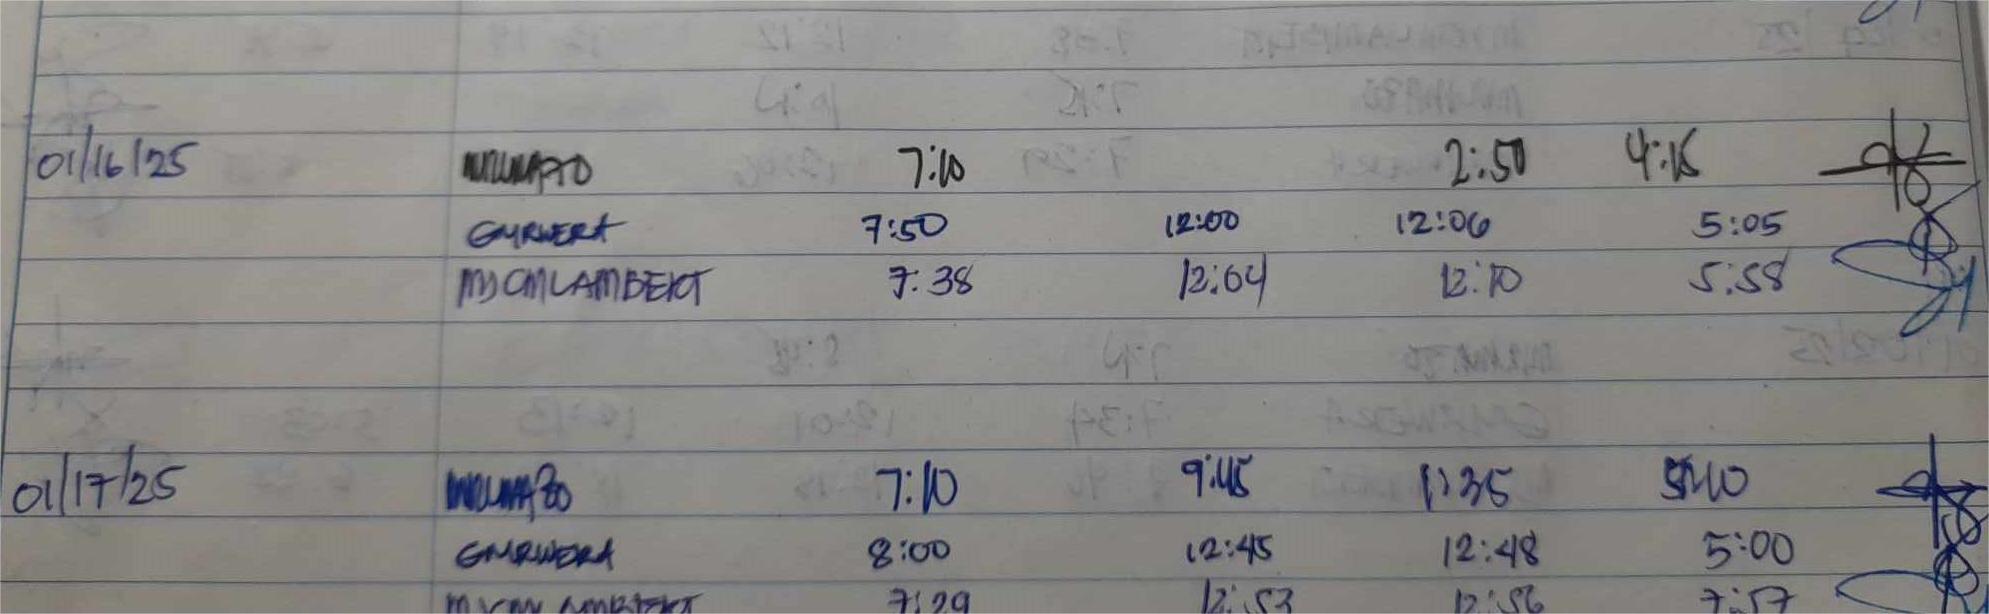 01/16/25 7:10 2:50 4:15
GMRWERA 7:50 12:00 12:06 5:05
MJCMLAMBERT 7:38 12:04 12:10 5:58
01/17/25 7:10 9:45 1:35 5:40
GMRWERA 8:00 12:45 12:48 5:00
MJCMLAMBERT 7:29 12:53 12:56 7:57